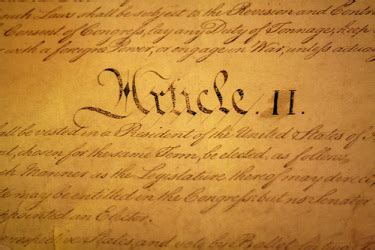 such Law shall be subject to the Revision and Contro
Consent of Congress, lay any Duty of Tonnage, keep
with a foreign Power, or engage in War, unless actua
Article. II.
all be vested in a President of the United States of A
nt, chosen for the same Term, be elected, as follows
ch Manner as the Legislature thereof may direct,
te may be entitled in the Congress: but no Senator
appointed an Elector.
respective States, and vote by Ballot